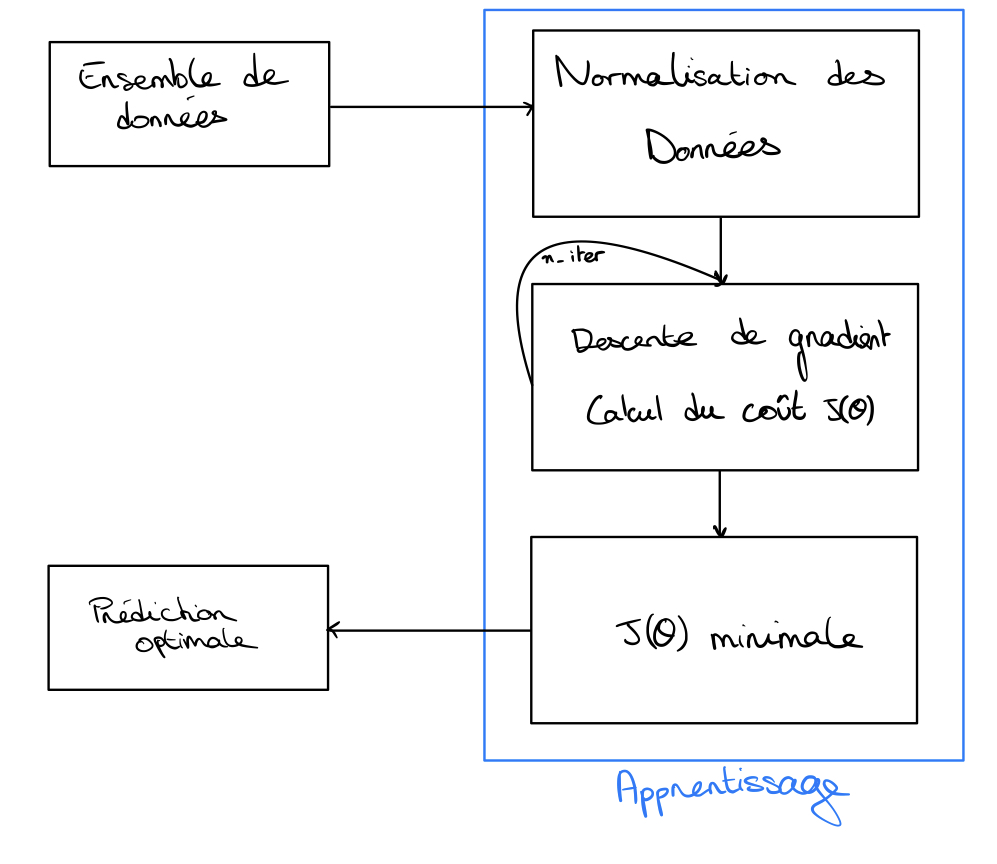 Ensemble de
données
Normalisation des
Données
n_iter
Descente de gradient
Calcul du coût J(Θ)
J(Θ) minimale
Prédiction
optimale
Apprentissage